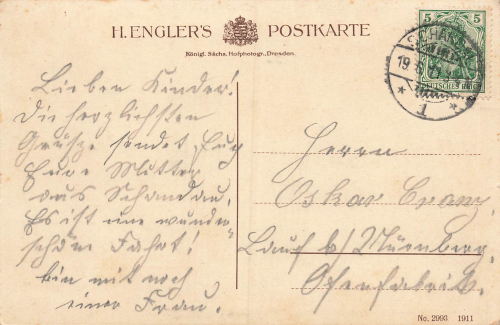 H. ENGLER'S POSTKARTE
Königl. Sächs. Hofphotogr., Dresden.
5 5
DEUTSCHES REICH
SCHANDAU
19
1
Lieben Kinder!
Die herzlichsten
Grüsze sendet Eug
Eure Mutter
aus Schandau.
Es ist eine wunder
schöne Fahrt!
bin mit noch
einer Frau.
Herrn
Oskar Cramz,
Lauf b/Nürnberg,
Ofenfabrik.
No. 2993 1911